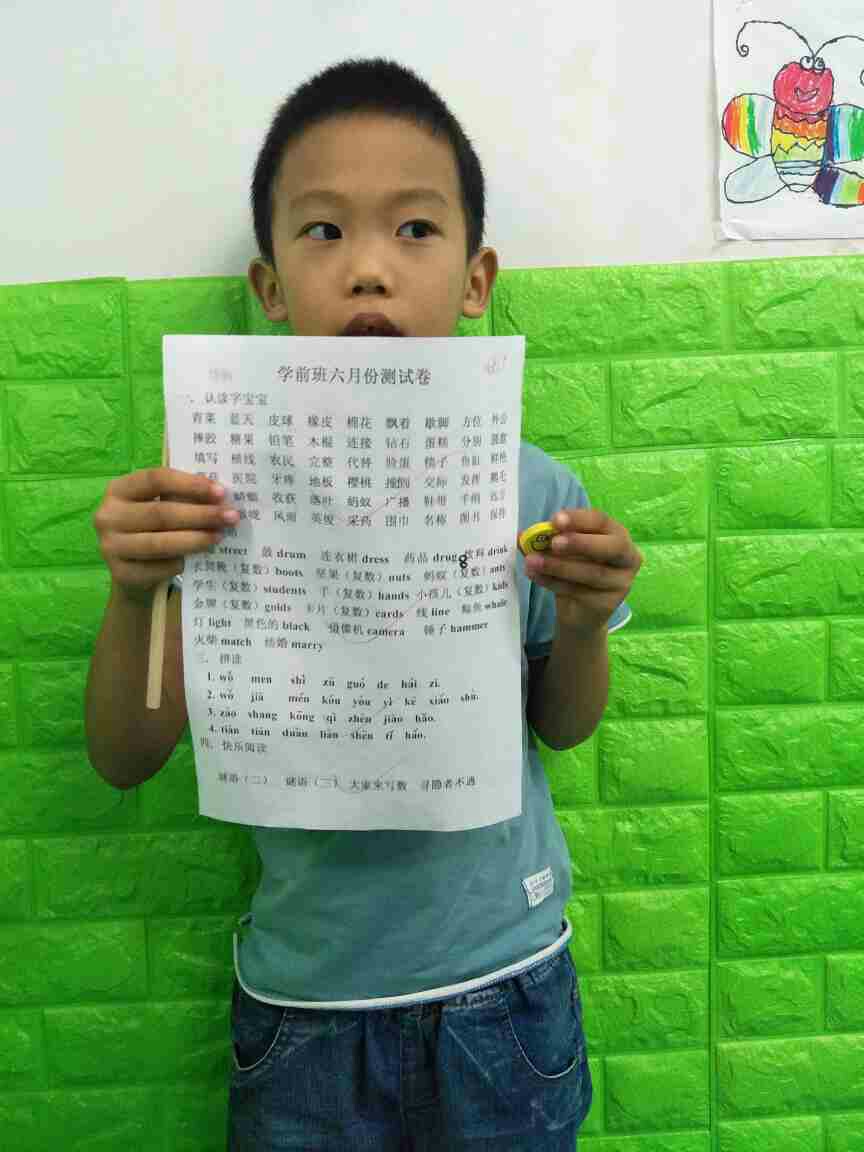 学前班六月份测试卷
一、认读字宝宝
青菜 蓝天 皮球 橡皮 棉花 飘着 歇脚 方位 外公
摔跤 糖果 铅笔 木棍 连接 钻石 蛋糕 分别
填写 横线 农民 完整 代替 脸蛋 梳子 鱼缸 鲜艳
医院 牙疼 地板 樱桃 撞倒 交际 发挥 鹅毛
蜻蜓 收获 呕吐 蚂蚁 广播 鞋带 手绢
风雨 英俊 采药 围巾 名称 图书 保持
street 鼓 drum 连衣裙 dress 药品 drug 饮料 drink
长筒靴（复数）boots 坚果（复数）nuts 蚂蚁（复数）ants
学生（复数）students 手（复数）hands 小孩儿（复数）kids
金牌（复数）golds 卡片（复数）cards 线 line 鲸鱼 whale
灯 light 黑色的 black 摄像机 camera 锤子 hammer
火柴 match 结婚 marry
三、拼读
1. wǒ men shì zǔ guó de hái zi.
2. wǒ jiā mén kǒu yǒu yì kē xiǎo shù.
3. zǎo shang kōng qì zhēn jiào hǎo.
4. tiān tiān duàn liàn shēn tǐ hǎo.
四、快乐阅读
谜语（二） 谜语（三） 大家来写数 寻隐者不遇